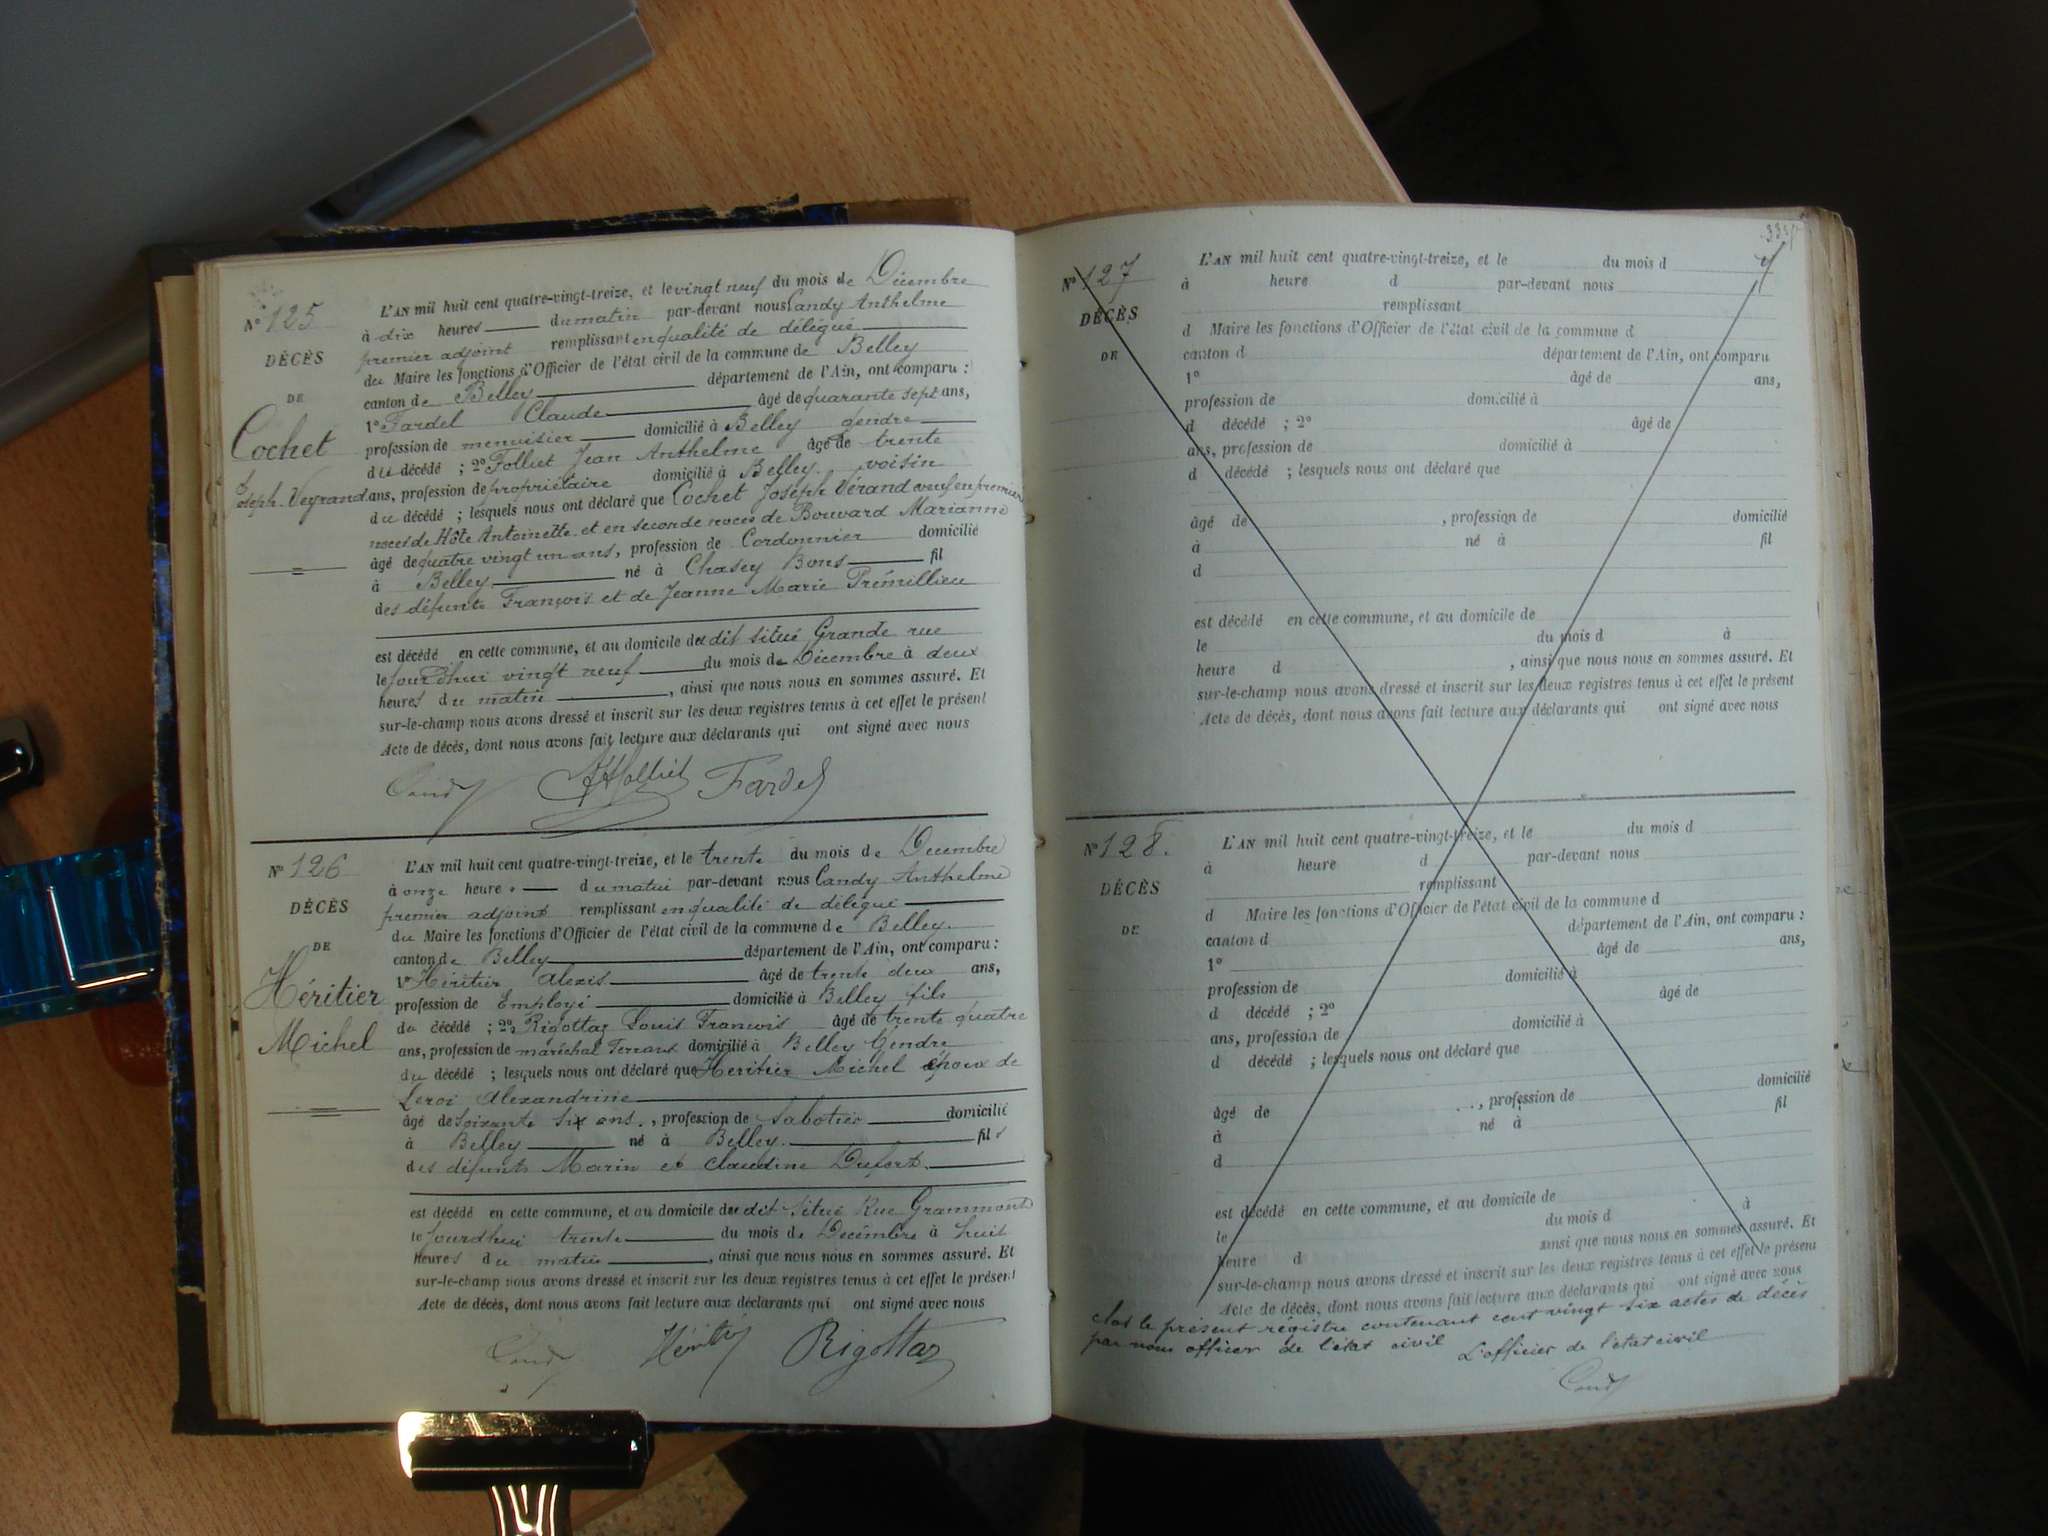 N° 125
DÉCÈS
DE
Cochet
Joseph Veyrand
L'AN mil huit cent quatre-vingt-treize, et le vingt neuf du mois de Décembre
à dix heures du matin par-devant nous Candy Anthelme
premier adjoint remplissant en qualité de délégué
du Maire les fonctions d'Officier de l'état civil de la commune de Belley
canton de Belley département de l'Ain, ont comparu :
1° Fardel Claude âgé de quarante sept ans,
profession de menuisier domicilié à Belley gendre
du décédé ; 2° Folliet Jean Anthelme âgé de trente
ans, profession de propriétaire domicilié à Belley voisin
du décédé ; lesquels nous ont déclaré que Cochet Joseph Vérand veuf en premier
noces de Hôte Antoinette et en seconde noces de Bouvard Marianne
âgé de quatre vingt un ans, profession de Cordonnier domicilié
à Belley né à Chasey Bons fil
des défunts François et de Jeanne Marie Prémillieu
est décédé en cette commune, et au domicile du dit situé Grande rue
le jourd'hui vingt neuf du mois de Décembre à deux
heures du matin, ainsi que nous nous en sommes assuré. Et
sur-le-champ nous avons dressé et inscrit sur les deux registres tenus à cet effet le présent
Acte de décès, dont nous avons fait lecture aux déclarants qui ont signé avec nous
Candy Folliet Fardel
N° 126
DÉCÈS
DE
Héritier
Michel
L'AN mil huit cent quatre-vingt-treize, et le trente du mois de Décembre
à onze heures du matin par-devant nous Candy Anthelme
premier adjoint remplissant en qualité de délégué
du Maire les fonctions d'Officier de l'état civil de la commune de Belley.
canton de Belley département de l'Ain, ont comparu :
1° Héritier Alexis âgé de trente deux ans,
profession de Employé domicilié à Belley fils
du décédé ; 2° Rigottaz Louis François âgé de trente quatre
ans, profession de maréchal Ferrant domicilié à Belley Gendre
du décédé ; lesquels nous ont déclaré que Héritier Michel époux de
Leroi Alexandrine
âgé de soixante six ans, profession de Sabotier domicilié
à Belley né à Belley fils
des défunts Marin et Claudine Dufort
est décédé en cette commune, et au domicile du dit situé Rue Grammont
le jourdhui trente du mois de Décembre à huit
heures du matin, ainsi que nous nous en sommes assuré. Et
sur-le-champ nous avons dressé et inscrit sur les deux registres tenus à cet effet le présent
Acte de décès, dont nous avons fait lecture aux déclarants qui ont signé avec nous
Candy Héritier Rigottaz
N° 127
DÉCÈS
DE
L'AN mil huit cent quatre-vingt-treize, et le du mois d
à heure d par-devant nous
remplissant
d Maire les fonctions d'Officier de l'état civil de la commune d
canton d département de l'Ain, ont comparu
1° âgé de ans,
profession de domicilié à
d décédé ; 2° âgé de
ans, profession de domicilié à
d décédé ; lesquels nous ont déclaré que
âgé de , profession de domicilié
à né à fil
d
est décédé en cette commune, et au domicile de
le du mois d à
heure d , ainsi que nous nous en sommes assuré. Et
sur-le-champ nous avons dressé et inscrit sur les deux registres tenus à cet effet le présent
Acte de décès, dont nous avons fait lecture aux déclarants qui ont signé avec nous
N° 128.
DÉCÈS
DE
L'AN mil huit cent quatre-vingt-treize, et le du mois d
à heure d par-devant nous
remplissant
d Maire les fonctions d'Officier de l'état civil de la commune d
canton d département de l'Ain, ont comparu :
1° âgé de ans,
profession de domicilié à
d décédé ; 2° âgé de
ans, profession de domicilié à
d décédé ; lesquels nous ont déclaré que
âgé de , profession de domicilié
à né à fil
d
est décédé en cette commune, et au domicile de
le du mois d à
heure d ainsi que nous nous en sommes assuré. Et
sur-le-champ nous avons dressé et inscrit sur les deux registres tenus à cet effet le présent
Acte de décès, dont nous avons fait lecture aux déclarants qui ont signé avec nous
Clos le présent régistre contenant cent vingt six actes de décès
par nous officier de l'état civil
L'officier de l'état civil
Candy